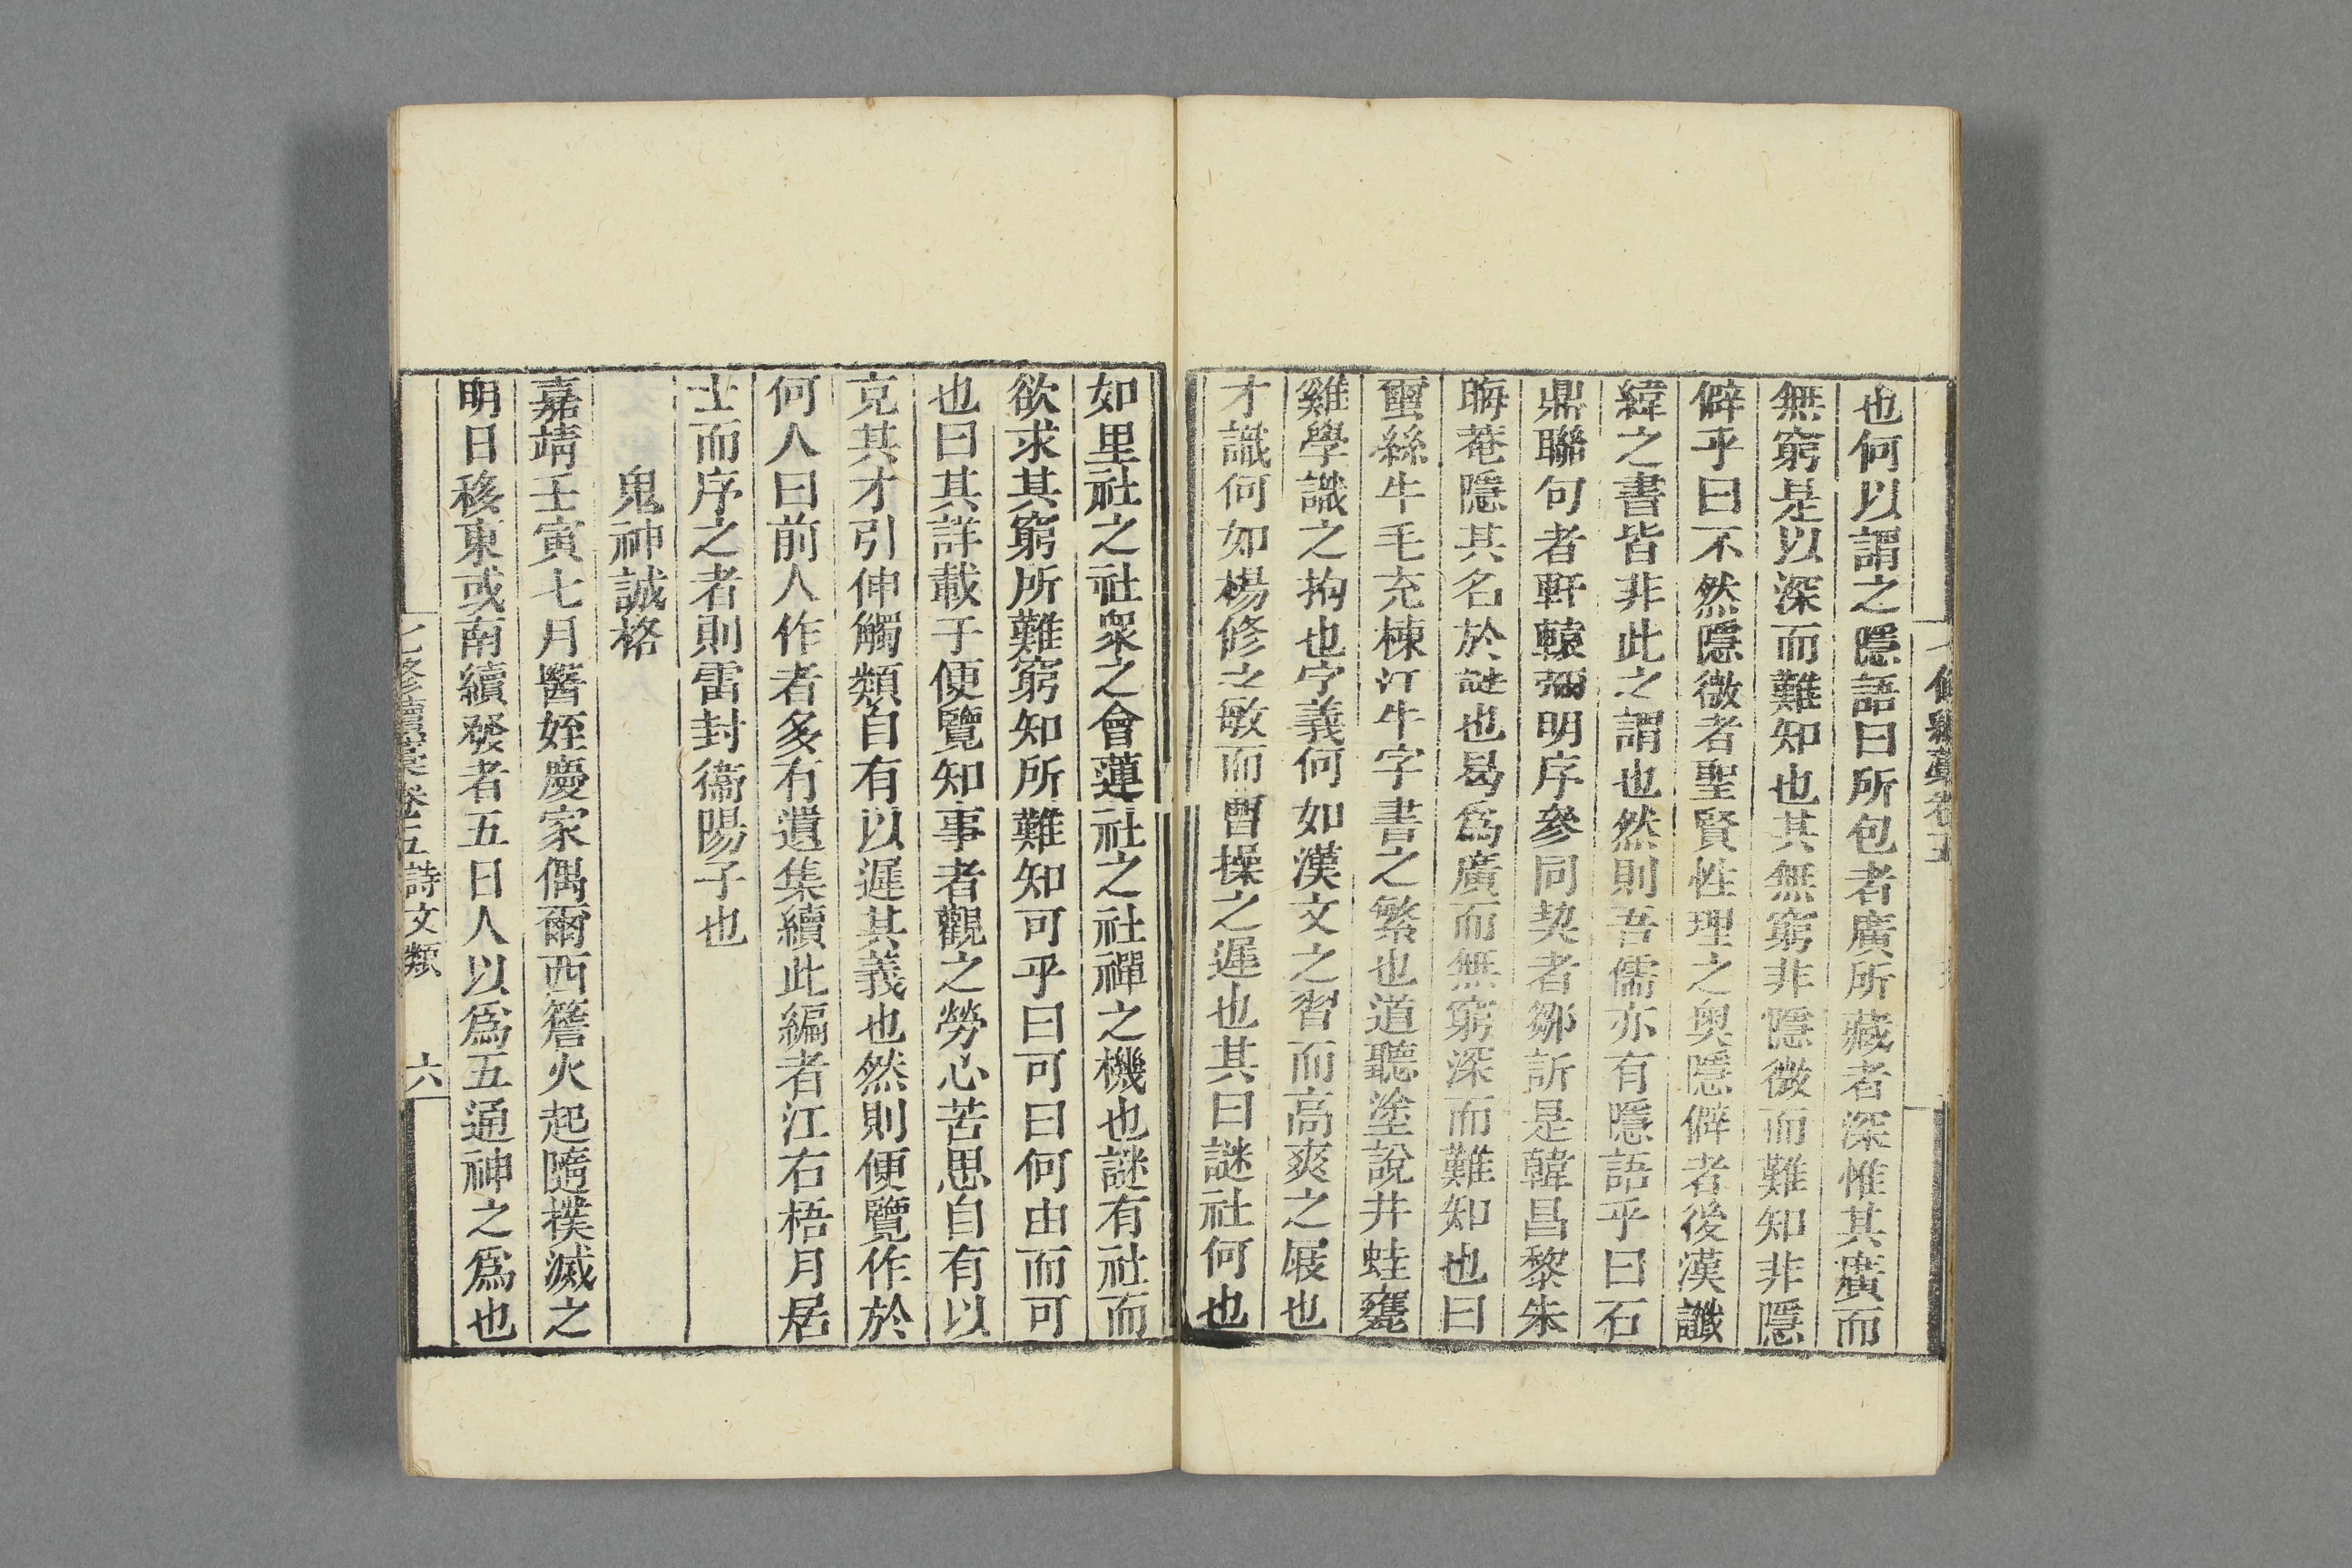 也何以謂之隱語曰所包者廣所藏者深惟其廣而
無窮是以深而難知也其無窮非隱微而難知非隱
僻乎曰不然隱微者聖賢性理之奥隱僻者後漢讖
緯之書皆非此之謂也然則吾儒亦有隱語乎曰石
鼎聯句者軒轅彌明序參同契者鄒訢是韓昌黎朱
晦菴隱其名於謎也曷爲廣而無窮深而難知也曰
蠒絲牛毛充棟汗牛字書之繁也道聽塗說井蛙甕
雞學識之拘也字義何如漢文之習而高爽之屐也
才識何如楊修之敏而曹操之遲也其曰謎社何也
如里社之社衆之會蓮社之社禪之機也謎有社而
欲求其窮所難窮知所難知可乎曰可曰何由而可
也曰其詳載于便覽知事者觀之勞心苦思自有以
克其才引伸觸類自有以遲其義也然則便覽作於
何人曰前人作者多有遺集續此編者江右梧月居
士而序之者則雷封衞陽子也
鬼神誠格
嘉靖壬寅七月醫姪慶家偶爾西簷火起隨撲滅之
明日移東或南續發者五日人以爲五通神之爲也
七修續稾卷五詩文類
六